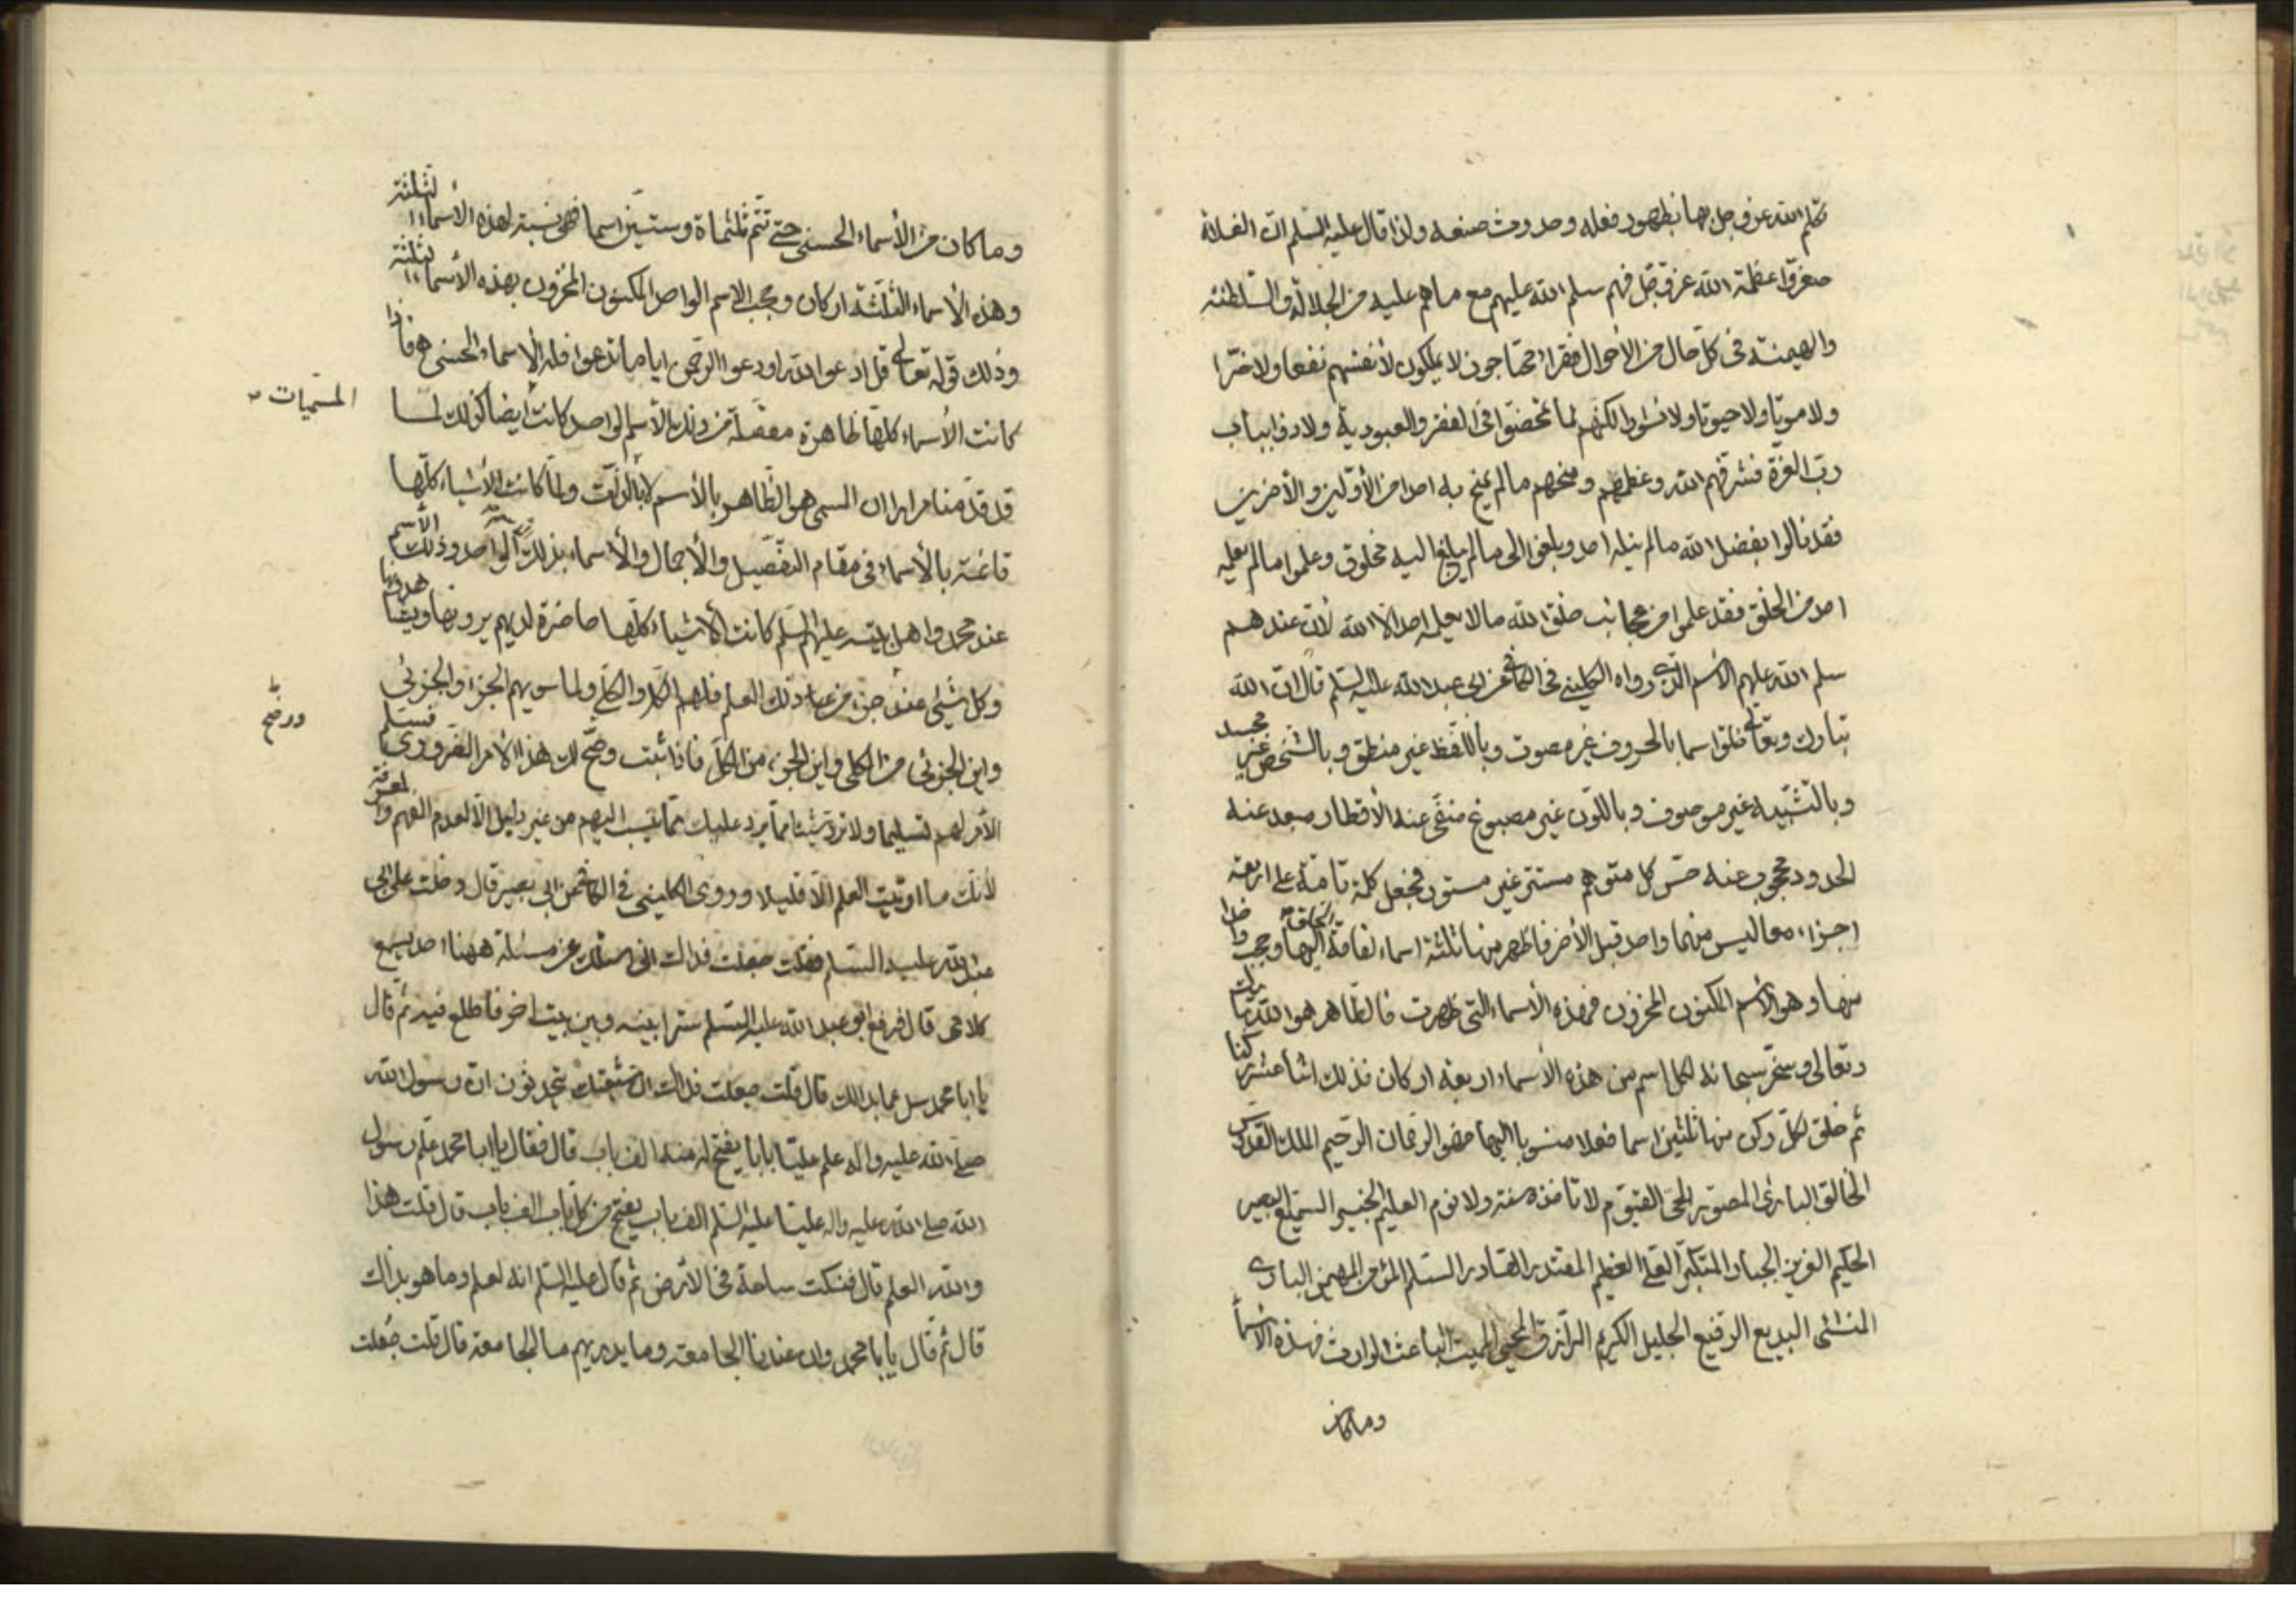 تكلم الله عز وجل بها بظهور فعله وحدوث صنعه ولذا قال عليه السلم ان الغلاة
صغروا عظمة الله عز وجل فهم سلم الله عليهم مع ما هم عليه من الجلالة والسلطنة
والهيمنة فى كل حال من الأحوال فقراء محتاجون لا يملكون لأنفسهم نفعا ولا ضرا
ولا موتا ولا حيوتا ولا نشورا لكنهم لما تمحضوا فى الفقر والعبودية ولاذوا بباب
رب العزة فشرفهم الله وعظمهم ومنحهم ما لم يمنح به احدا من الأولين والأخرين
فقد نالوا بفضل الله ما لم ينله احد وبلغوا الى ما لم يبلغ اليه مخلوق وعلموا ما لم يعلمه
احد من الخلق فقد علموا من عجائب خلق الله ما لا يعلمه احد الا الله لأن عندهم
سلم الله عليهم الأسم الذى رواه الكلينى فى الكافى عن ابى عبد الله عليه السلم قال ان الله
تبارك وتعالى خلق اسما بالحروف غير مصوت وباللفظ غير منطق وبالشخص غير مجسد
وبالتشبيه غير موصوف وباللون غير مصبوغ منفى عنه الأقطار مبعد عنه
الحدود محجوب عنه حس كل متوهم مستتر غير مستور فجعل كلمة تامة على اربعة
اجزاء معا ليس منها واحد قبل الأخر فاظهر منها ثلثة اسماء لفاقة الخلق اليها وحجب واحدا
منها وهو الأسم المكنون المخزون فهذه الأسماء التى ظهرت فالظاهر هو الله تبارك
وتعالى وسخر سبحانه لكل اسم من هذه الأسماء اربعة اركان فذلك اثنا عشر ركنا
ثم خلق لكل ركن منها ثلثين اسما فعلا منسوبا اليها فهو الرحمان الرحيم الملك القدوس
الخالق البارئ المصور الحى القيوم لا تاخذه سنة ولا نوم العليم الخبير السميع البصير
الحكيم العزيز الجبار المتكبر العلى العظيم المقتدر القادر السلم المؤمن المهيمن البارى
المنشئ البديع الرفيع الجليل الكريم الرازق المحيى المميت الباعث الوارث فهذه الأسماء
وما كان
وما كان من الأسماء الحسنى حتى تتم ثلثماة وستين اسما فهى نسبة لهذه الأسماء الثلثة
وهذه الأسماء الثلثة اركان وحجب الاسم الواحد المكنون المخزون بهذه الأسماء الثلثة
وذلك قوله تعالى قل ادعوا الله او ادعوا الرحمن ايا ما تدعوا فله الأسماء الحسنى هـ فاذا
كانت الأسماء كلها ظاهرة مفصلة من ذلك الأسم الواحد كانت ايضا كذلك لسا
المسميات
قد قدمنا مرارا ان المسمى هو الظاهر بالأسم لا بالذات ولما كانت الأشياء كلها
قائمة بالأسماء فى مقام التفصيل والأجمال والأسماء بذلك الواحد وذلك الأسم
عند محمد واهل بيته عليهم السلم كانت الأشياء كلها حاضرة لديهم يرونها ويشاهدونها
وكل شيئ عنده جزء من ذلك العلم فلهم الكل والكلى ولما سويهم الجزء والجزئى
واين الجزئى من الكلى واين الجزء من الكل فاذا ثبت وضح لك هذا الأمر الضرورى فسلم
ووضح
الأمر لهم تسليما ولا ترد شيئا مما يرد عليك مما ينسب اليهم من غير دليل الا لعدم الفهم والمعرفة
لأنك ما اوتيت العلم الا قليلا وروى الكلينى فى الكافى عن ابى بصير قال دخلت على ابى
عبد الله عليه السلم فقلت جعلت فداك انى اسئلك عن مسئلة ههنا احد يسمع
كلامى قال فرفع ابو عبد الله عليه السلم سترا بينه وبين بيت اخر فاطلع فيه ثم قال
يا ابا محمد سل عما بدا لك قال قلت جعلت فداك ان شيعتك يتحدثون ان رسول الله
صلى الله عليه واله علم عليا بابا يفتح له منه الف باب قال فقال يا ابا محمد علم رسول
الله صلى الله عليه واله عليا عليه السلم الف باب يفتح من كل باب الف باب قال قلت هذا
والله العلم قال فنكت ساعة فى الأرض ثم قال عليه السلم انه لعلم وما هو بذاك
قال ثم قال يا ابا محمد وان عندنا الجامعة وما يدريهم ما الجامعة قال قلت جعلت